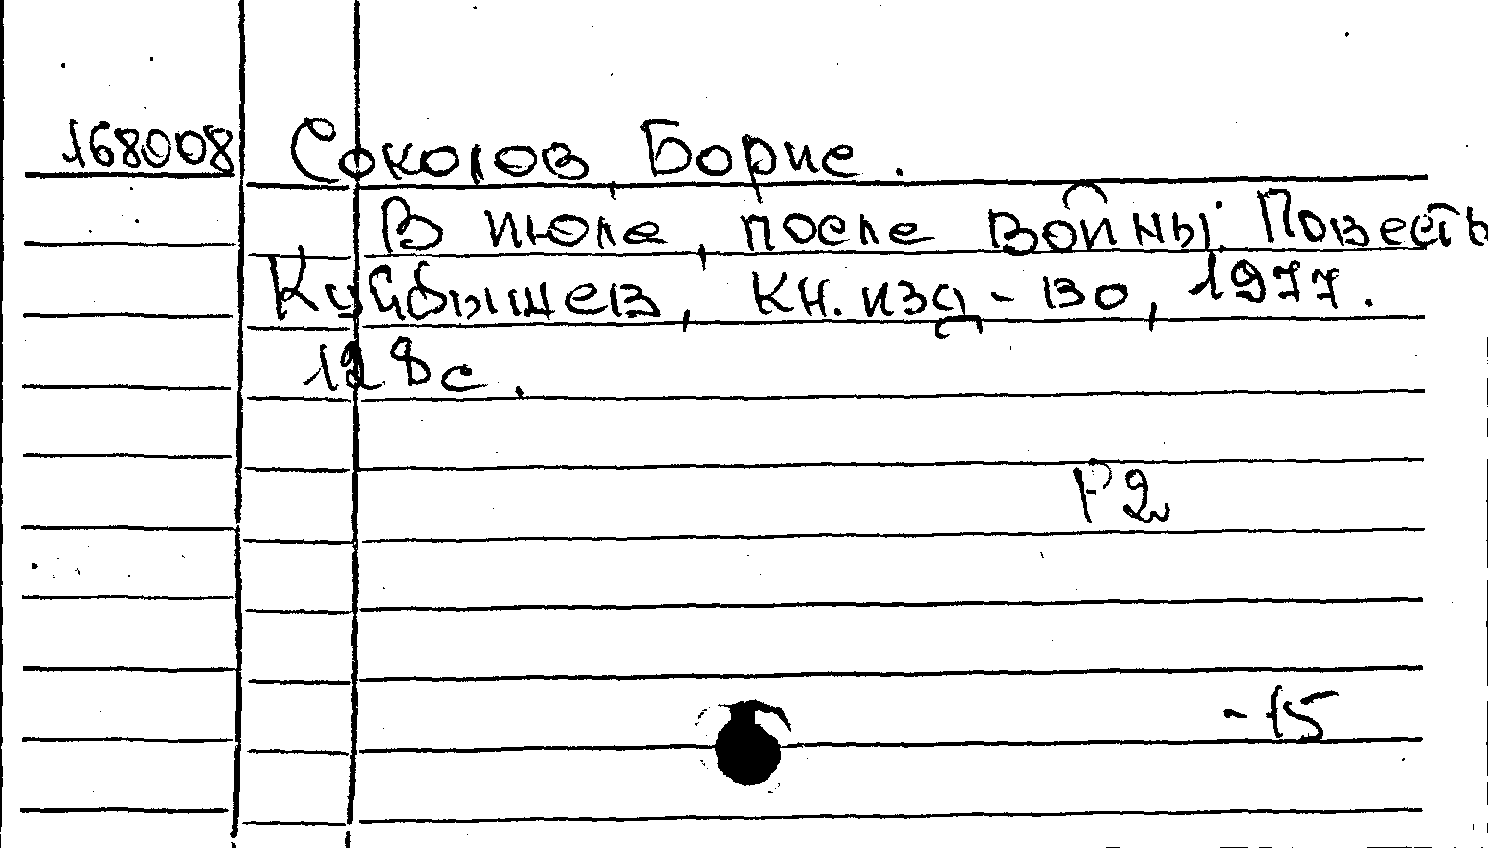 168008 Соколов, Борис.
В июле, после войны: Повесть
Куйбышев, кн. изд-во, 1977.
128 с.
Р2
-15